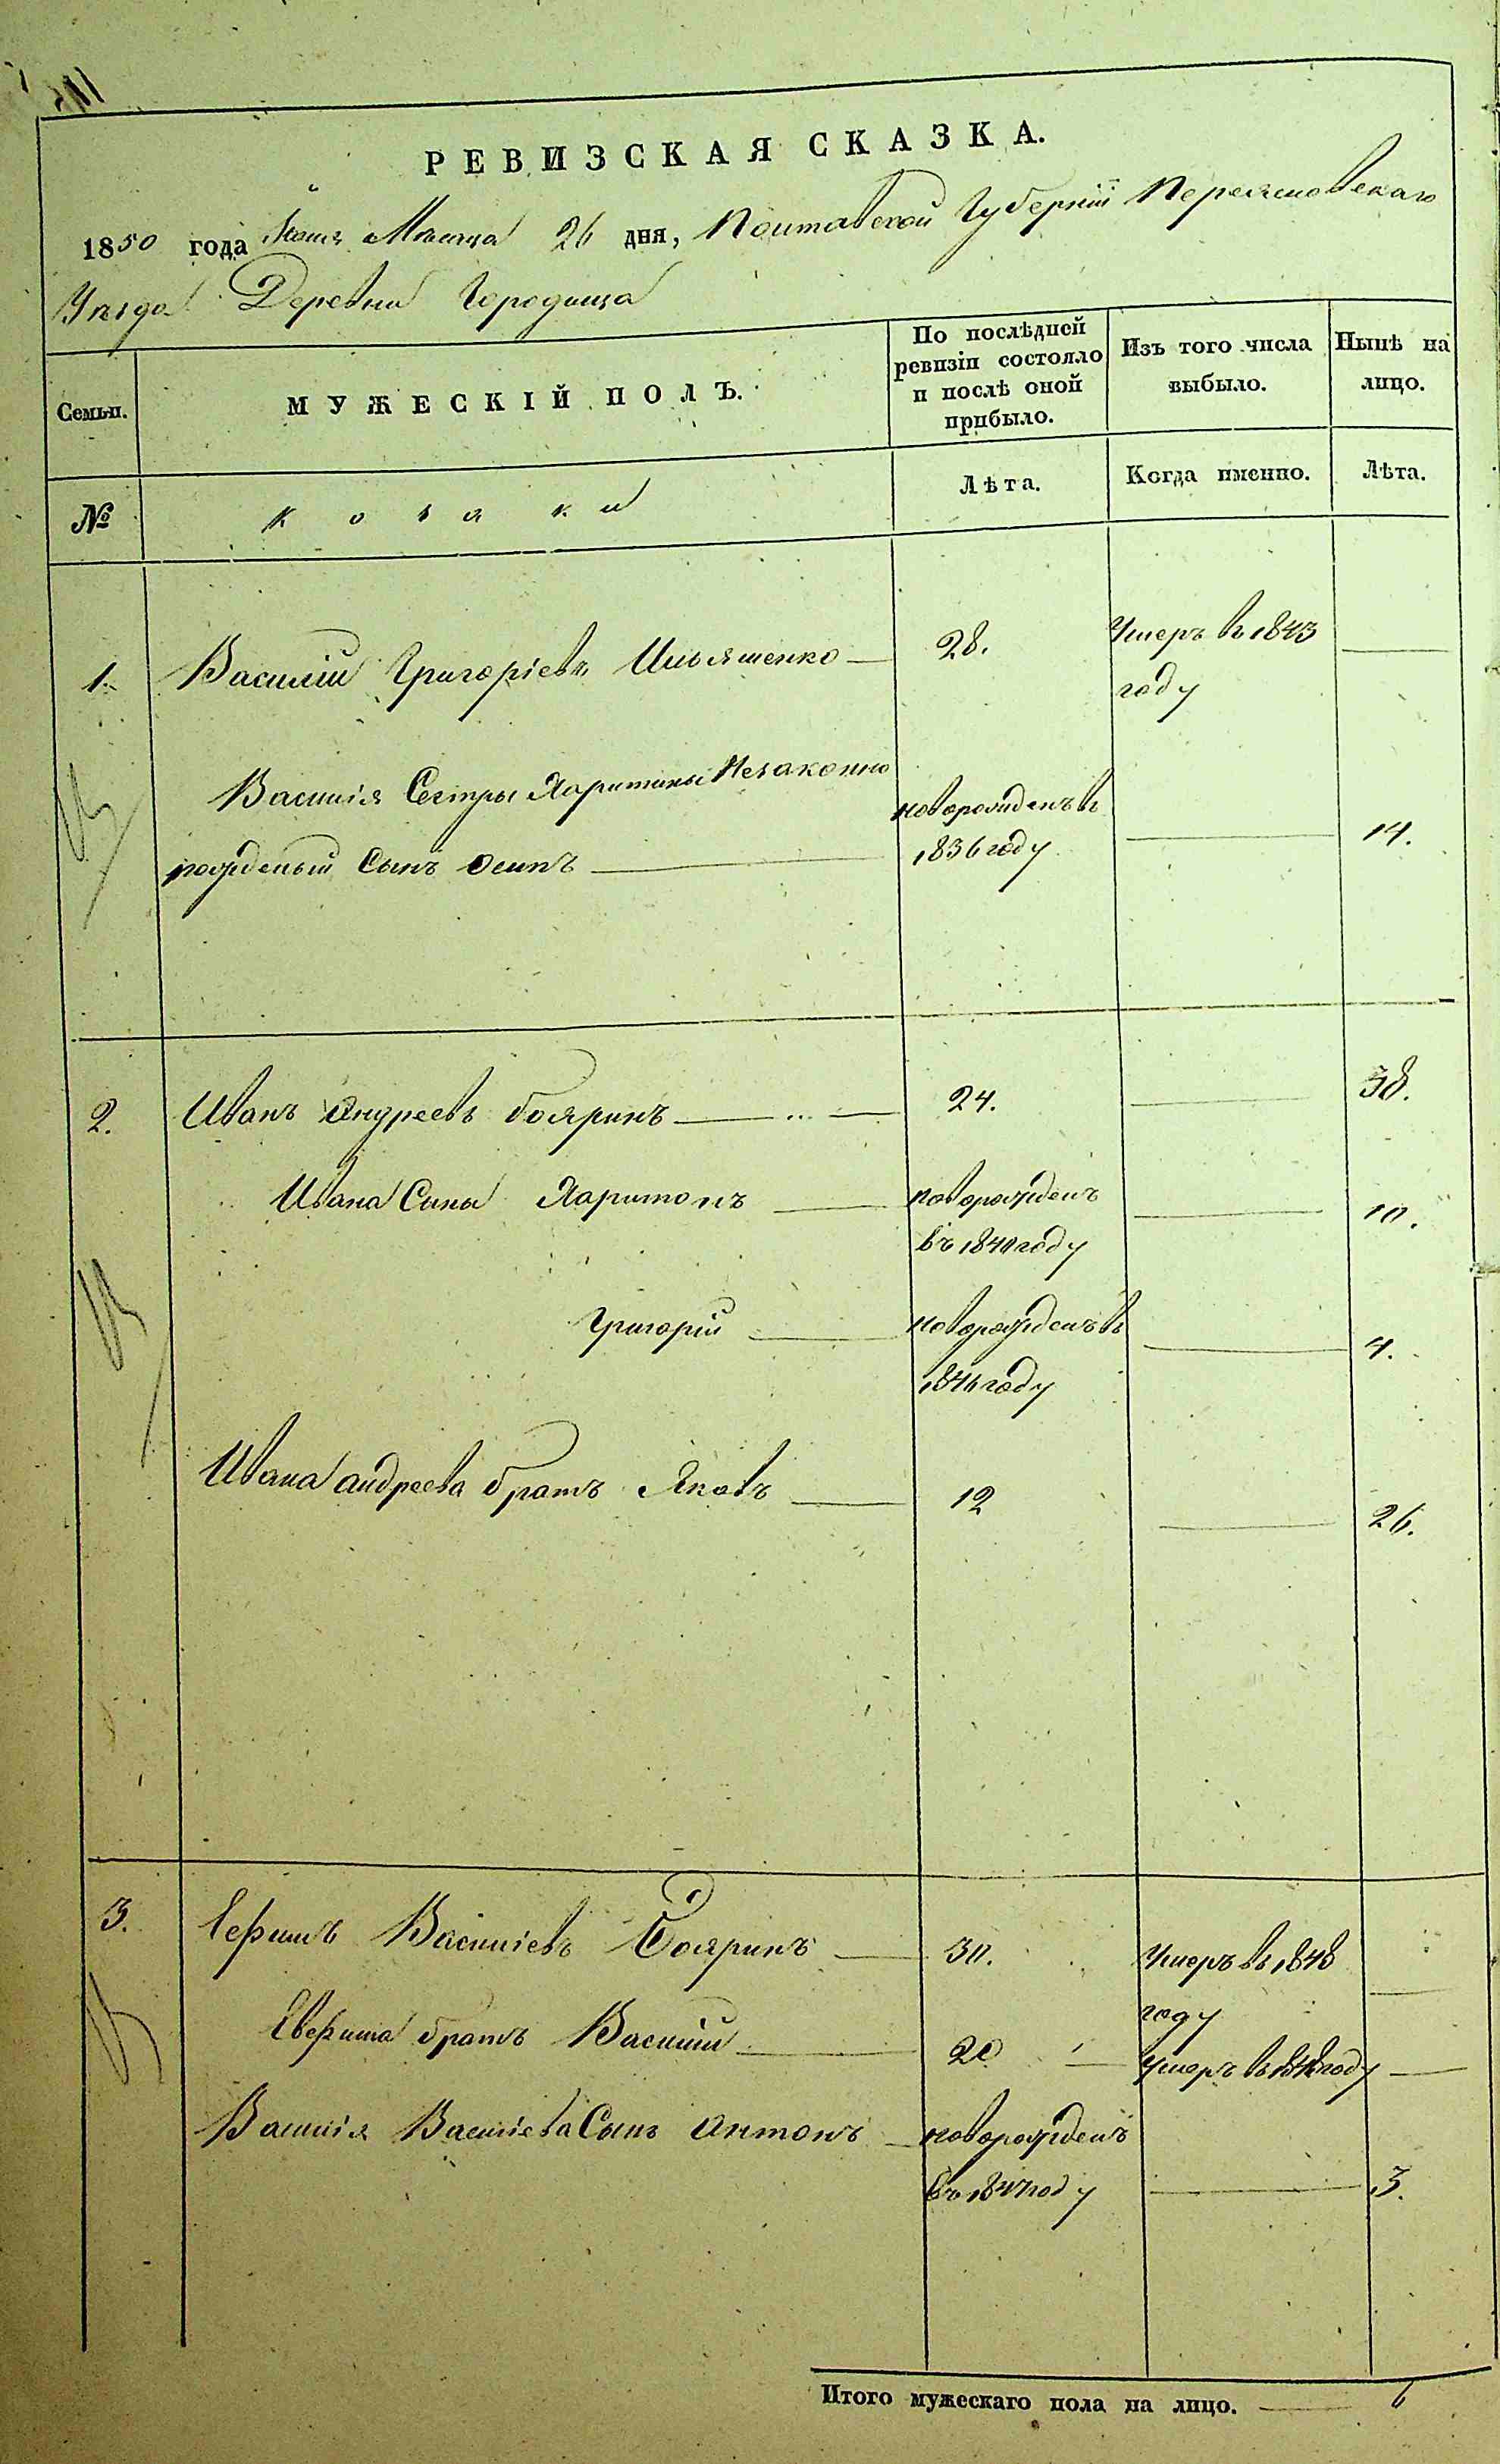 РЕВИЗСКАЯ СКАЗКА.
1850 года Мѣсяца 26 дня, Полтавской Губерніи Переяславскаго
Уѣзда Деревни Городища
Семьи.
МУЖЕСКІЙ ПОЛЪ.
По послѣдней
ревизіи состояло
и послѣ оной
прибыло.
Изъ того числа
выбыло.
Нынѣ на
лицо.
№
козаки
Лѣта.
Когда именно.
Лѣта.
1. Василій Григоріевъ Ильяшенко — 28. Умеръ въ 1843 —
году
Василія Сестры Харитины Незаконно новорожденъ в
рожденый Сынъ Осипъ — 1836 году — 14.
2. Иванъ Андреевъ бояринъ — 24. — 38.
Ивана Сины Харитонъ — новорожденъ — 10.
въ 1840 году
Григорій — новорожденъ в — 4.
1846 году
Ивана андреева братъ Яковъ — 12 — 26.
3. Ефимъ Василіевъ Бояринъ — 30. Умеръ въ 1848 —
году
Евфима братъ Василий — 20 — умеръ в 1848 году —
Василія Василіева Сынъ Антонъ — новорожденъ
въ 1847 году — 3.
Итого мужескаго пола на лицо. — 6